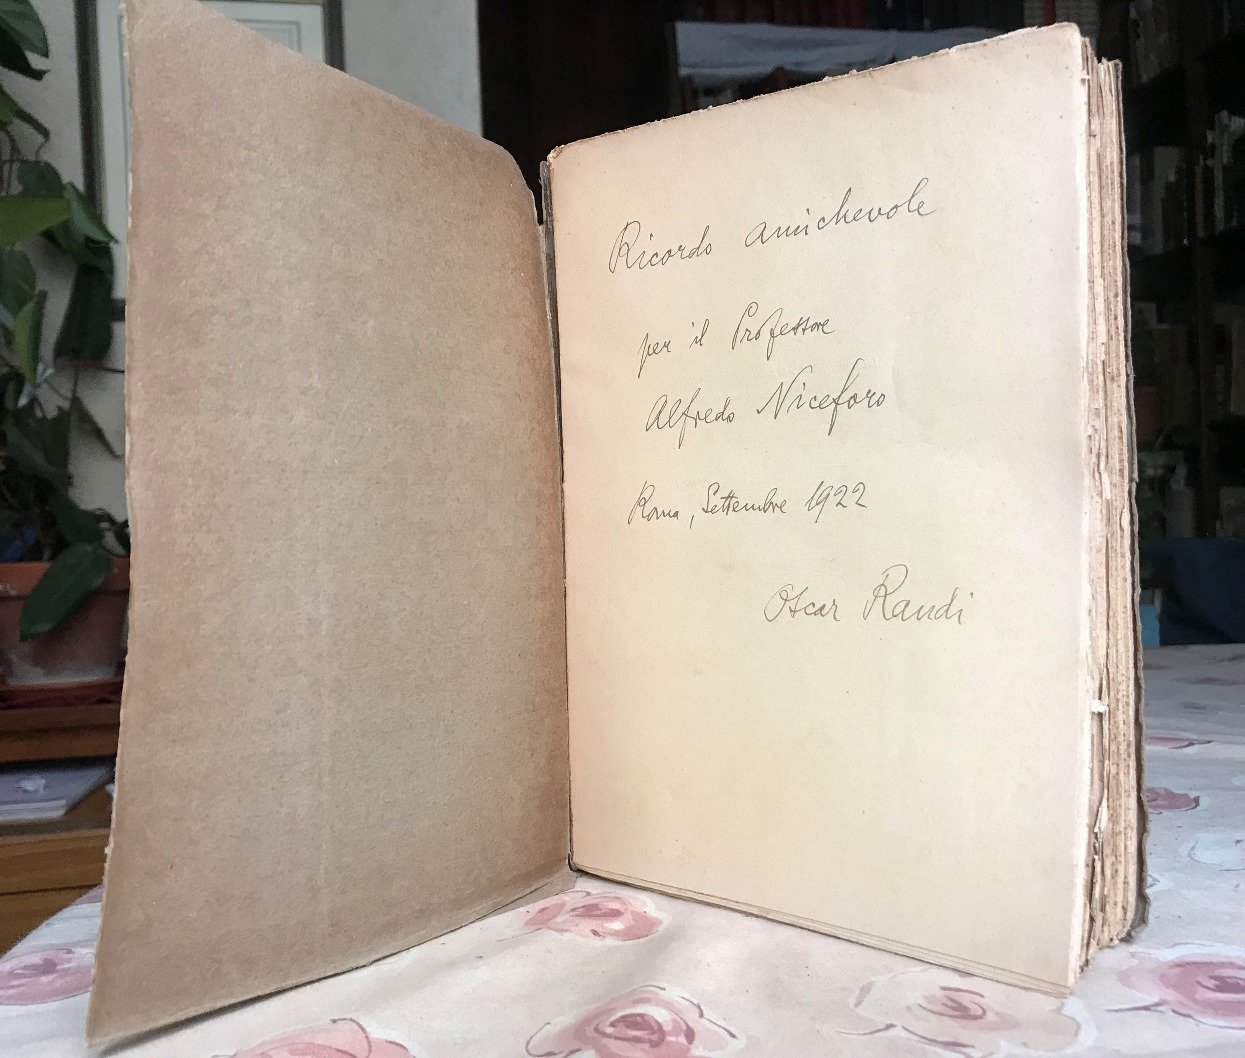 Ricordo amichevole
per il Professore
Alfredo Niceforo
Roma, Settembre 1922
Oscar Randi